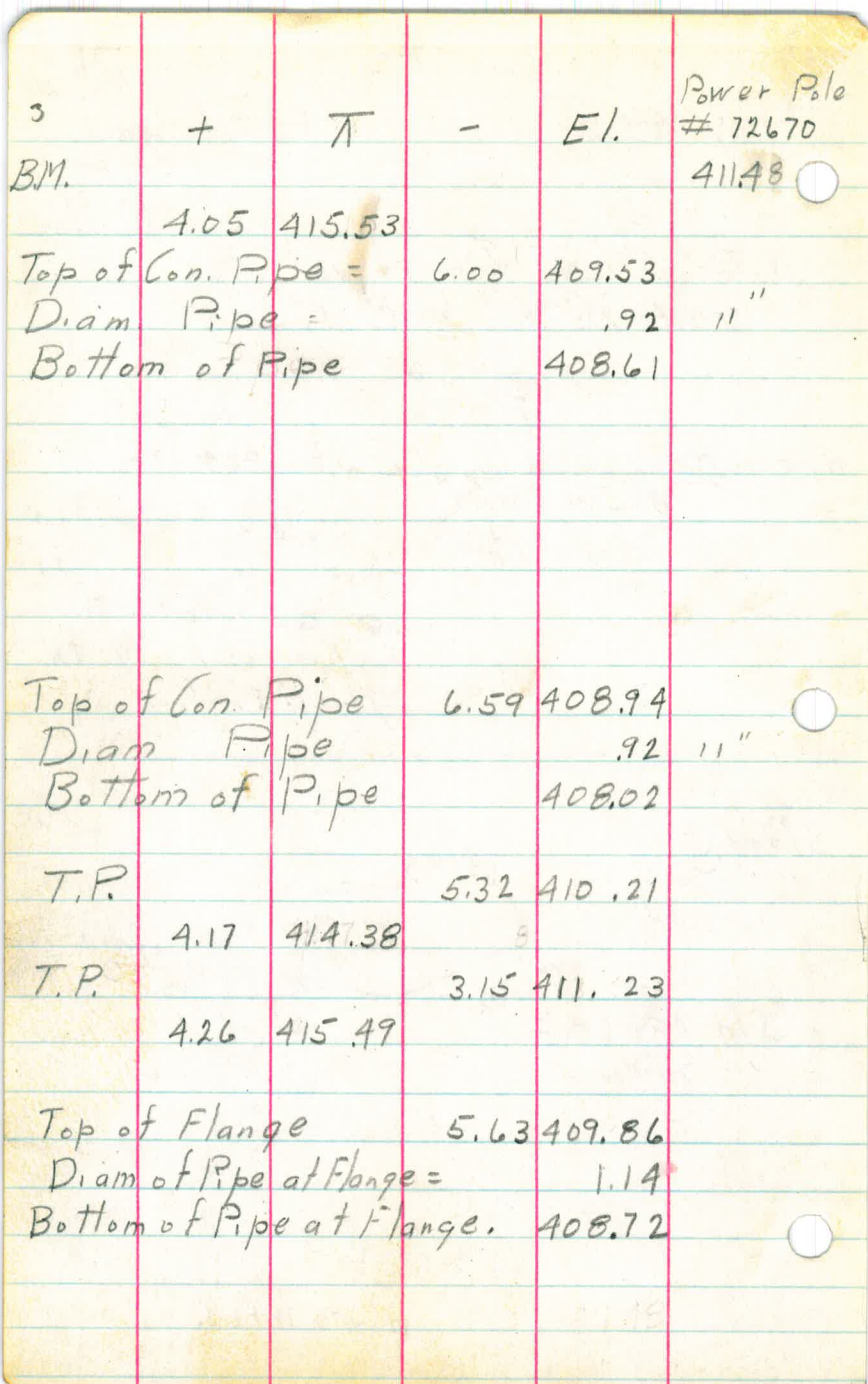 Power Pole
3 + ⊼ - El. # 72670
B.M. 411.48
4.05 415.53
Top of Con. Pipe = 6.00 409.53
Diam Pipe = .92 11"
Bottom of Pipe 408.61
Top of Con. Pipe 6.59 408.94
Diam Pipe .92 11"
Bottom of Pipe 408.02
T.P. 5.32 410.21
4.17 414.38
T.P. 3.15 411.23
4.26 415.49
Top of Flange 5.63 409.86
Diam of Pipe at Flange = 1.14
Bottom of Pipe at Flange. 408.72